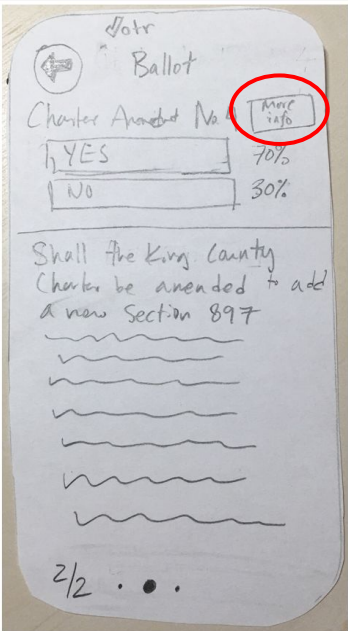 Votr
Ballot
Charter Amendment No. 4
More info
YES 70%
NO 30%
Shall the King County
Charter be amended to add
a new Section 897
2/2